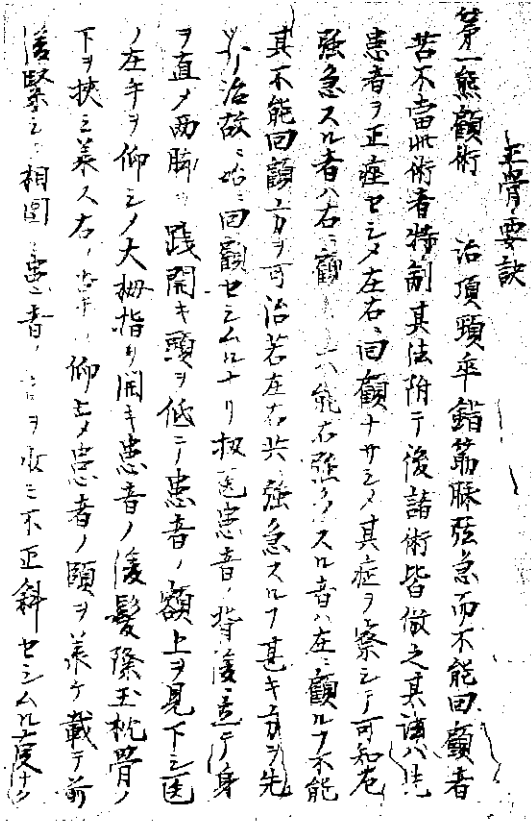 正骨要訣
第一熊顧術　治項頸卒錯筋脉強急而不能回顧者
若不當此術者特制其法附テ後諸術皆倣之其法ハ先
患者ヲ正座セシメ左右ニ回顧ナサシメ其症ヲ察シテ可知左
強急スル者ハ右ニ顧 能右強急スル者ハ左ニ顧ルフ不能
其不能回顧方ヲ可治若左右共ニ強急スルフ甚キ方ヲ先
治故ニ 回顧セシムルナリ扨医患者ノ背後ニ立テ身
ヲ直メ両脚 踐開キ頭ヲ低テ患者ノ額上ヲ見下シ医
ノ左手ヲ仰シメ大拇指ヲ開キ患者ノ後髪際玉枕骨ノ
下ヲ挟ミ承ス右ノ 手 仰上メ患者ノ頤ヲ承ケ載テ前
後緊シク相固 患者ノ ヲ 不正斜セシムル